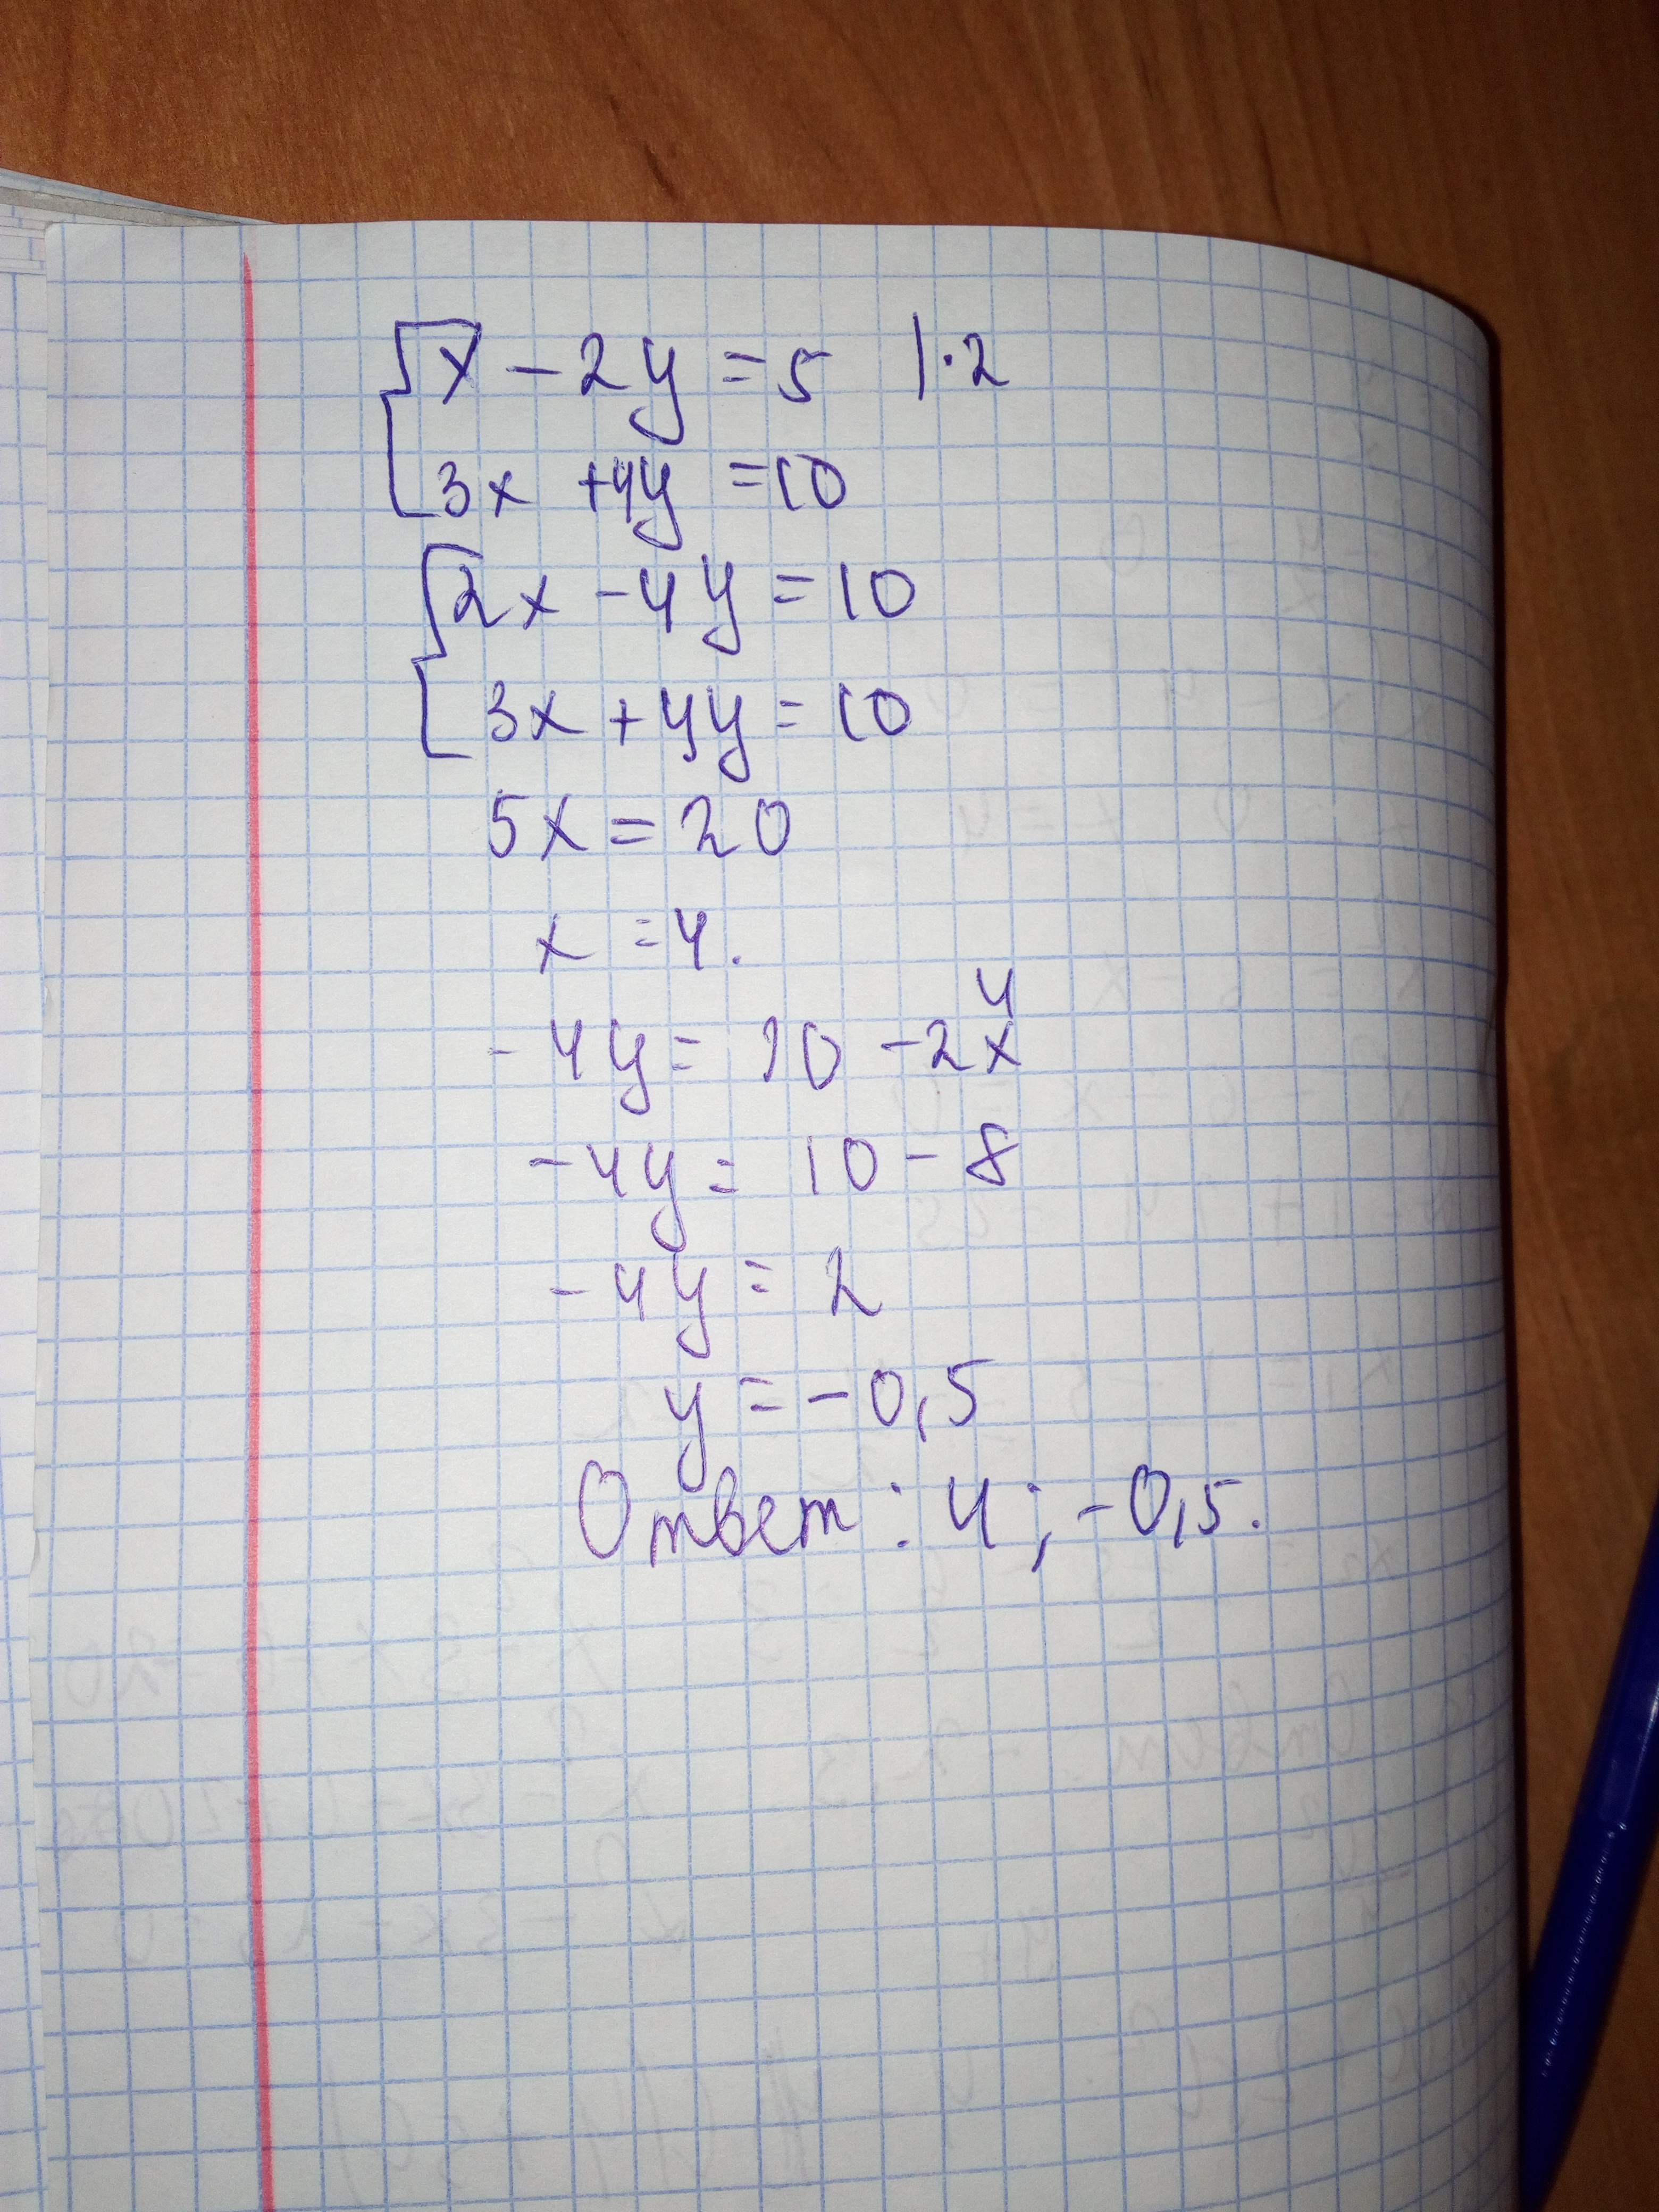 x - 2y = 5 | · 2
3x + 4y = 10
2x - 4y = 10
3x + 4y = 10
5x = 20
x = 4.
4
-4y = 10 - 2x
-4y = 10 - 8
-4y = 2
y = -0,5
Ответ: 4; -0,5.